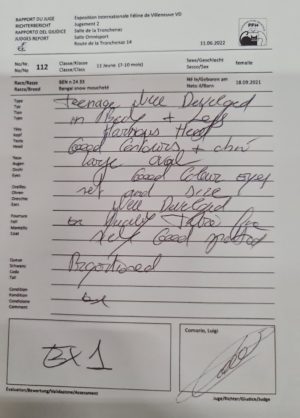 RAPPORT DU JUGE
RICHTERBERICHT
RAPPORTO DEL GIUDICE
JUDGES REPORT
Exposition Internationale Féline de Villeneuve VD
Jugement 2
Salle de la Tronchenaz
Route de la Tronchenaz 14
11.06.2022
FFH
No/Nr. 112
Classe/Klasse
Classe/Class
11 Jeune (7-10 mois)
Sexe/Geschlecht
Sesso/Sex
femelle
Race/Rasse
Razza/Breed
BEN n 24 33
Bengal snow moucheté
Né le/Geboren am
Nato il/Born
18.09.2021
Type
Typ
Tipo
Type
Teenage Well Developed
in Body + Legs
Tête
Kopf
Testa
Head
Harmonious Head
Good Contours + chin
Yeux
Augen
Occhi
Eyes
Large oval
Good Colour eyes
Oreilles
Ohren
Orecchie
Ears
set and size
Well Developed
Fourrure
Fell
Mantello
Coat
Very Good
Queue
Schwanz
Coda
Tail
Proportioned
Condition
Kondition
Condizione
Condition
Ex
Comario, Luigi
EX 1
Evaluation/Bewertung/Valutazione/Assessment
Juge/Richter/Giudice/Judge